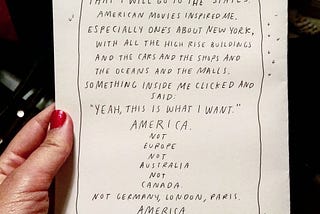 THAT I WILL GO TO THE STATES.
AMERICAN MOVIES INSPIRED ME.
ESPECIALLY ONES ABOUT NEW YORK,
WITH ALL THE HIGH RISE BUILDINGS
AND THE CARS AND THE SHIPS AND
THE OCEANS AND THE MALLS.
SOMETHING INSIDE ME CLICKED AND
SAID:
"YEAH, THIS IS WHAT I WANT."
AMERICA.
NOT
EUROPE
NOT
AUSTRALIA
NOT
CANADA.
NOT GERMANY, LONDON, PARIS.
AMERICA